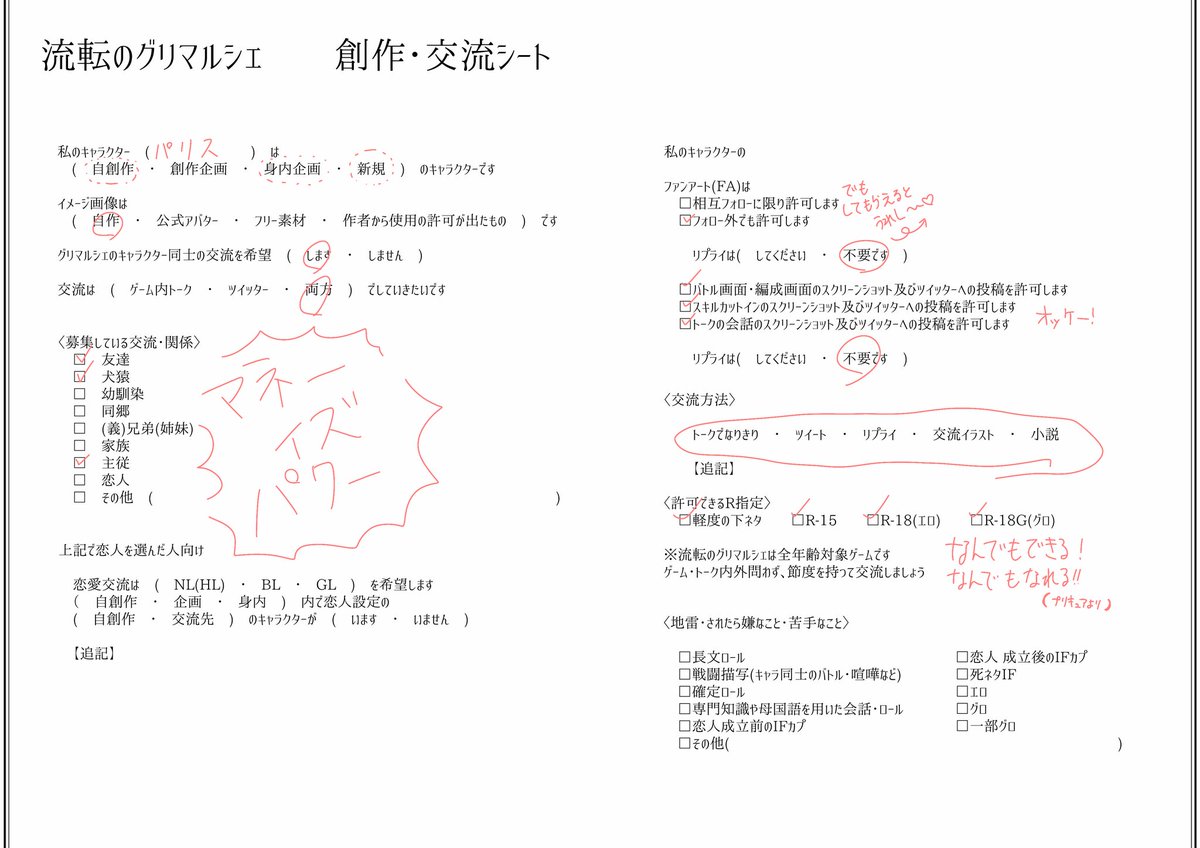 流転のグリマルシェ　　創作・交流シート
私のキャラクター （パリス　　） は
（ 自創作 ・ 創作企画 ・ 身内企画 ・ 新規 ） のキャラクターです
イメージ画像は
（ 自作 ・ 公式アバター ・ フリー素材 ・ 作者から使用の許可が出たもの ） です
グリマルシェのキャラクター同士の交流を希望 （ します ・ しません ）
交流は （ ゲーム内トーク ・ ツイッター ・ 両方 ） でしていきたいです
〈募集している交流・関係〉
☑ 友達
☑ 犬猿
□ 幼馴染
□ 同郷
□ (義)兄弟(姉妹)
□ 家族
☑ 主従
□ 恋人
□ その他 （　　）
マネー
イズ
パワー
上記で恋人を選んだ人向け
恋愛交流は （ NL(HL) ・ BL ・ GL ） を希望します
（ 自創作 ・ 企画 ・ 身内 ） 内で恋人設定の
（ 自創作 ・ 交流先 ） のキャラクターが （ います ・ いません ）
【追記】
私のキャラクターの
ファンアート(FA)は
□相互フォローに限り許可します
☑フォロー外でも許可します
でも
してもらえると
うれし〜♡
リプライは( してください ・ 不要です )
☑バトル画面・編成画面のスクリーンショット及びツイッターへの投稿を許可します
☑スキルカットインのスクリーンショット及びツイッターへの投稿を許可します
☑トークの会話のスクリーンショット及びツイッターへの投稿を許可します
オッケー!
リプライは( してください ・ 不要です )
〈交流方法〉
トークでなりきり ・ ツイート ・ リプライ ・ 交流イラスト ・ 小説
【追記】
〈許可できるR指定〉
☑軽度の下ネタ ☑R-15 ☑R-18(エロ) ☑R-18G(グロ)
※流転のグリマルシェは全年齢対象ゲームです
ゲーム・トーク内外問わず、節度を持って交流しましょう
なんでもできる!
なんでもなれる!!
(プリキュアより)
〈地雷・されたら嫌なこと・苦手なこと〉
□長文ロール
□戦闘描写(キャラ同士のバトル・喧嘩など)
□確定ロール
□専門知識や母国語を用いた会話・ロール
□恋人成立前のIFカプ
□その他(　　)
□恋人 成立後のIFカプ
□死ネタIF
□エロ
□グロ
□一部グロ